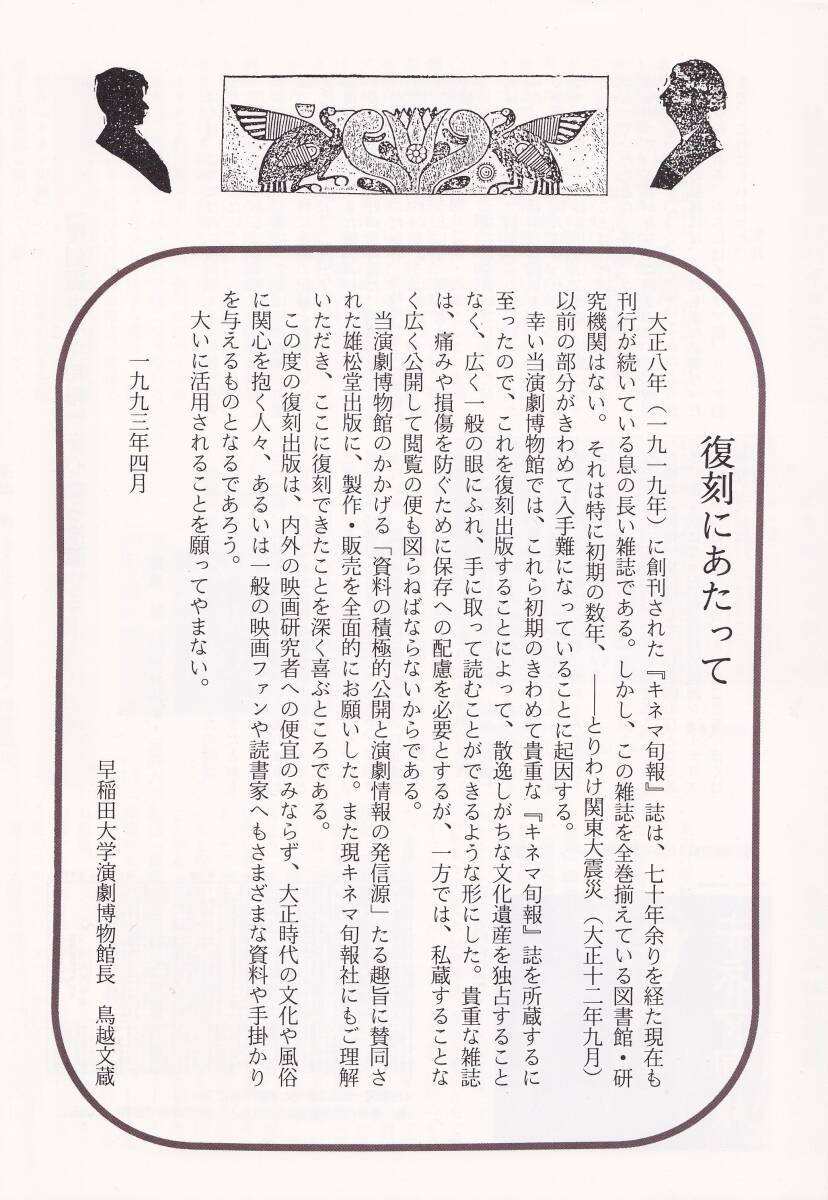 復刻にあたって
大正八年（一九一九年）に創刊された『キネマ旬報』誌は、七十年余りを経た現在も
刊行が続いている息の長い雑誌である。しかし、この雑誌を全巻揃えている図書館・研
究機関はない。それは特に初期の数年、――とりわけ関東大震災（大正十二年九月）
以前の部分がきわめて入手難になっていることに起因する。
幸い当演劇博物館では、これら初期のきわめて貴重な『キネマ旬報』誌を所蔵するに
至ったので、これを復刻出版することによって、散逸しがちな文化遺産を独占すること
なく、広く一般の眼にふれ、手に取って読むことができるような形にした。貴重な雑誌
は、痛みや損傷を防ぐために保存への配慮を必要とするが、一方では、私蔵することな
く広く公開して閲覧の便も図らねばならないからである。
当演劇博物館のかかげる「資料の積極的公開と演劇情報の発信源」たる趣旨に賛同さ
れた雄松堂出版に、製作・販売を全面的にお願いした。また現キネマ旬報社にもご理解
いただき、ここに復刻できたことを深く喜ぶところである。
この度の復刻出版は、内外の映画研究者への便宜のみならず、大正時代の文化や風俗
に関心を抱く人々、あるいは一般の映画ファンや読書家へもさまざまな資料や手掛かり
を与えるものとなるであろう。
大いに活用されることを願ってやまない。
一九九三年四月
早稲田大学演劇博物館長　鳥越文蔵